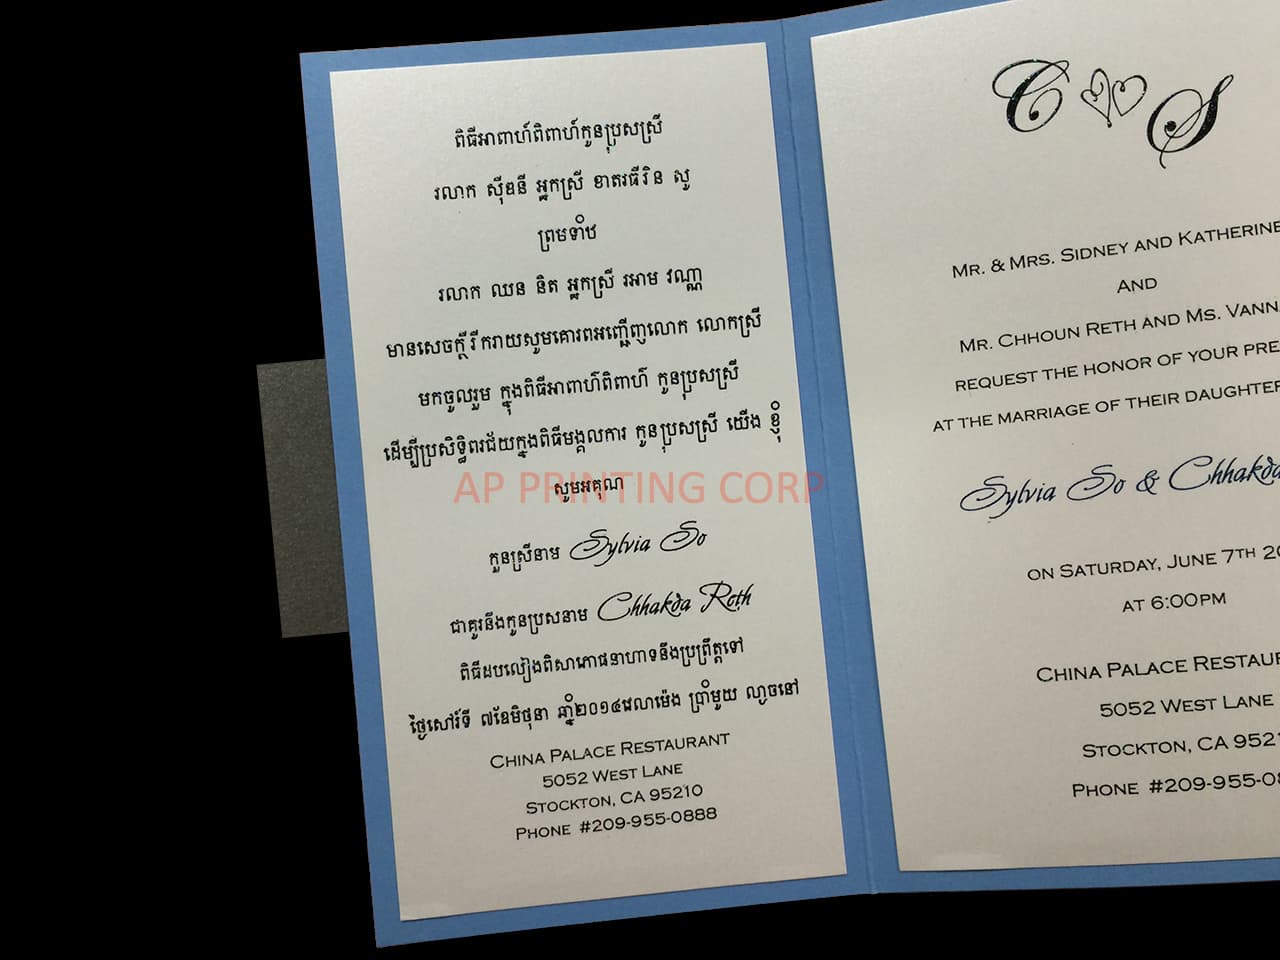 ពិធីអាពាហ៍ពិពាហ៍កូនប្រុសស្រី
រលាក ស៊ីឌនី អ្នកស្រី ខាតរធីរិន សូ
ព្រមទាំង
រលាក ឈន និត អ្នកស្រី រអាម វណ្ណា
មានសេចក្តីរីករាយសូមគោរពអញ្ជើញលោក លោកស្រី
មកចូលរួម ក្នុងពិធីអាពាហ៍ពិពាហ៍ កូនប្រុសស្រី
ដើម្បីប្រសិទ្ធិពរជ័យក្នុងពិធីមង្គលការ កូនប្រុសស្រី យើង ខ្ញុំ
សូមអគុណ
AP PRINTING CORP
កូនស្រីនាម Sylvia So
ជាគូរនឹងកូនប្រុសនាម Chhakda Reth
ពិធីជបលៀងពិសាភោជនាហារនឹងប្រព្រឹត្តទៅ
ថ្ងៃសៅរ៍ទី ៧ខែមិថុនា ឆ្នាំ២០១៤វេលាម៉ោង ប្រាំមួយ ល្ងាចនៅ
CHINA PALACE RESTAURANT
5052 WEST LANE
STOCKTON, CA 95210
PHONE #209-955-0888
C S
MR. & MRS. SIDNEY AND KATHERINE
AND
MR. CHHOUN RETH AND MS. VANN
REQUEST THE HONOR OF YOUR PRE
AT THE MARRIAGE OF THEIR DAUGHTER
Sylvia So & Chhakda
ON SATURDAY, JUNE 7TH 20
AT 6:00PM
CHINA PALACE RESTAUR
5052 WEST LANE
STOCKTON, CA 9521
PHONE #209-955-08